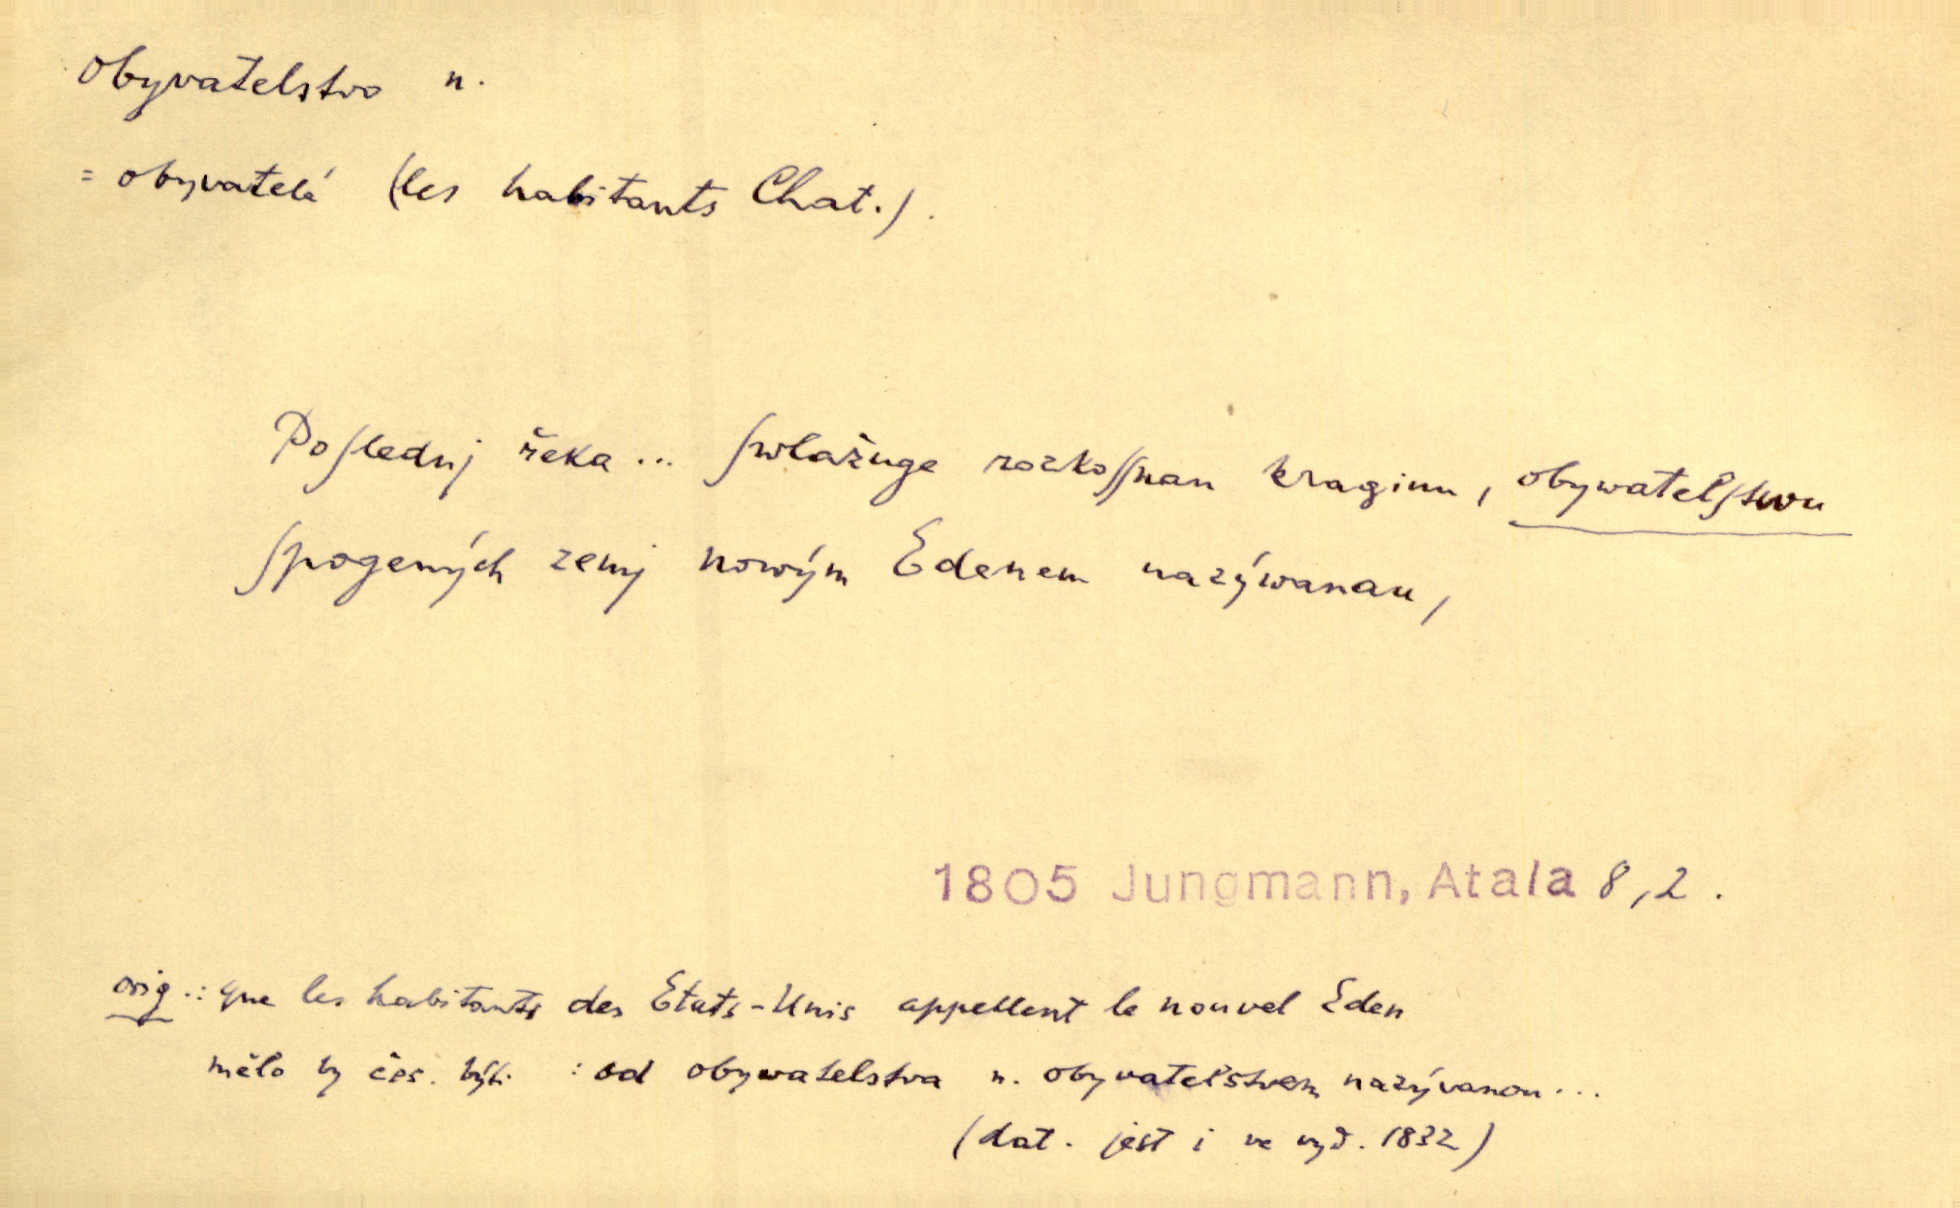 Obyvatelstvo n.
= obyvatelé (les habitants Chat.).
Poſlednj řeka ... ſwlažuge rozkoſſnau kraginu, obywatelſtwu
ſpogených zemj nowým Edenem nazýwanau,
1805 Jungmann, Atala 8,2.
orig.: que les habitants des Etats-Unis appellent le nouvel Eden
mělo by čes. být : od obywatelstva n. obyvatelstvem nazývanou...
(dat. jest i ve vyd. 1832)